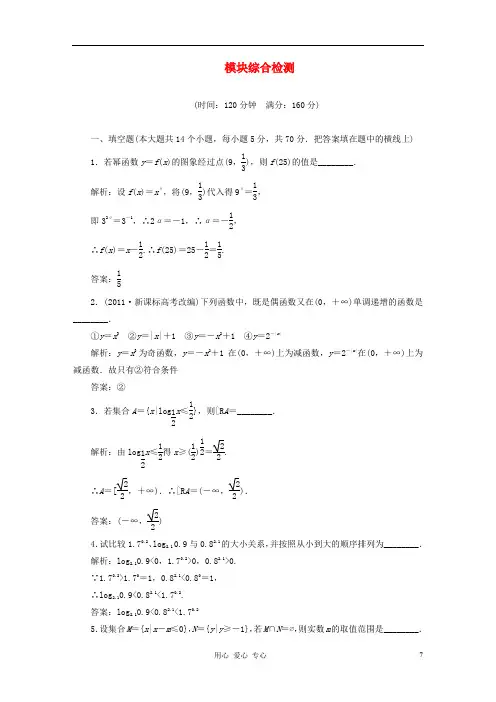 模块综合检测
(时间：120分钟　满分：160分)
一、填空题(本大题共14个小题，每小题5分，共70分．把答案填在题中的横线上)
1．若幂函数y＝f(x)的图象经过点(9，1/3)，则f(25)的值是________．
解析：设f(x)＝x^α，将(9，1/3)代入得9^α＝1/3，
即3^2α＝3^－1，∴2α＝－1，∴α＝－1/2，
∴f(x)＝x－1/2.∴f(25)＝25－1/2＝1/5.
答案：1/5
2．(2011·新课标高考改编)下列函数中，既是偶函数又在(0，＋∞)单调递增的函数是
________．
①y＝x^3　②y＝|x|＋1　③y＝－x^2＋1　④y＝2^－|x|
解析：y＝x^3为奇函数，y＝－x^2＋1在(0，＋∞)上为减函数，y＝2^－|x|在(0，＋∞)上为
减函数．故只有②符合条件
答案：②
3．若集合A＝{x|log1/2x≤1/2}，则∁RA＝________.
解析：由log1/2x≤1/2得x≥(1/2)1/2＝√2/2.
∴A＝[√2/2，＋∞)．∴∁RA＝(－∞，√2/2)．
答案：(－∞，√2/2)
4.试比较1.7^0.2、log2.1 0.9与0.8^2.1的大小关系，并按照从小到大的顺序排列为________．
解析：log2.1 0.9<0，1.7^0.2>0，0.8^2.1>0.
∵1.7^0.2>1.7^0＝1，0.8^2.1<0.8^0＝1，
∴log2.1 0.9<0.8^2.1<1.7^0.2.
答案：log2.1 0.9<0.8^2.1<1.7^0.2
5.设集合M＝{x|x－m≤0}，N＝{y|y≥－1}，若M∩N＝∅，则实数m的取值范围是________．
用心　爱心　专心
7